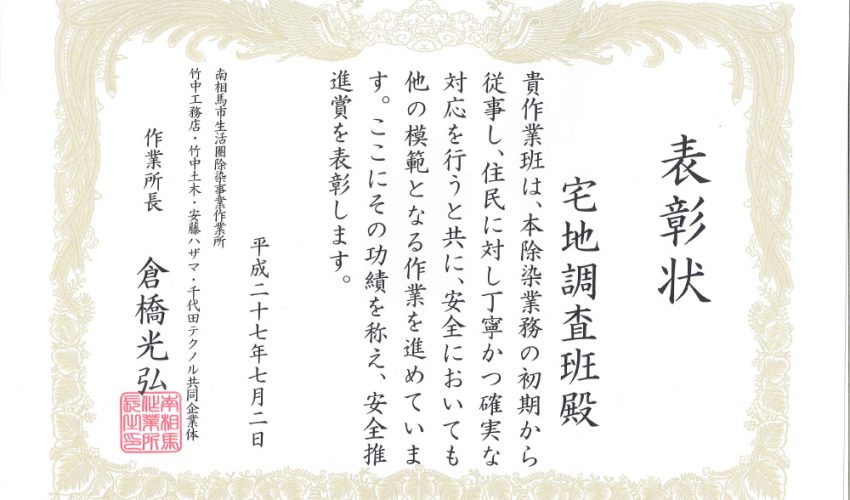 表彰状
宅地調査班殿
貴作業班は、本除染業務の初期から
従事し、住民に対し丁寧かつ確実な
対応を行うと共に、安全においても
他の模範となる作業を進めていま
す。ここにその功績を称え、安全推
進賞を表彰します。
平成二十七年七月二日
南相馬市生活圏除染事業作業所
竹中工務店・竹中土木・安藤ハザマ・千代田テクノル共同企業体
作業所長　倉橋光弘
南相馬
作業所
長之印